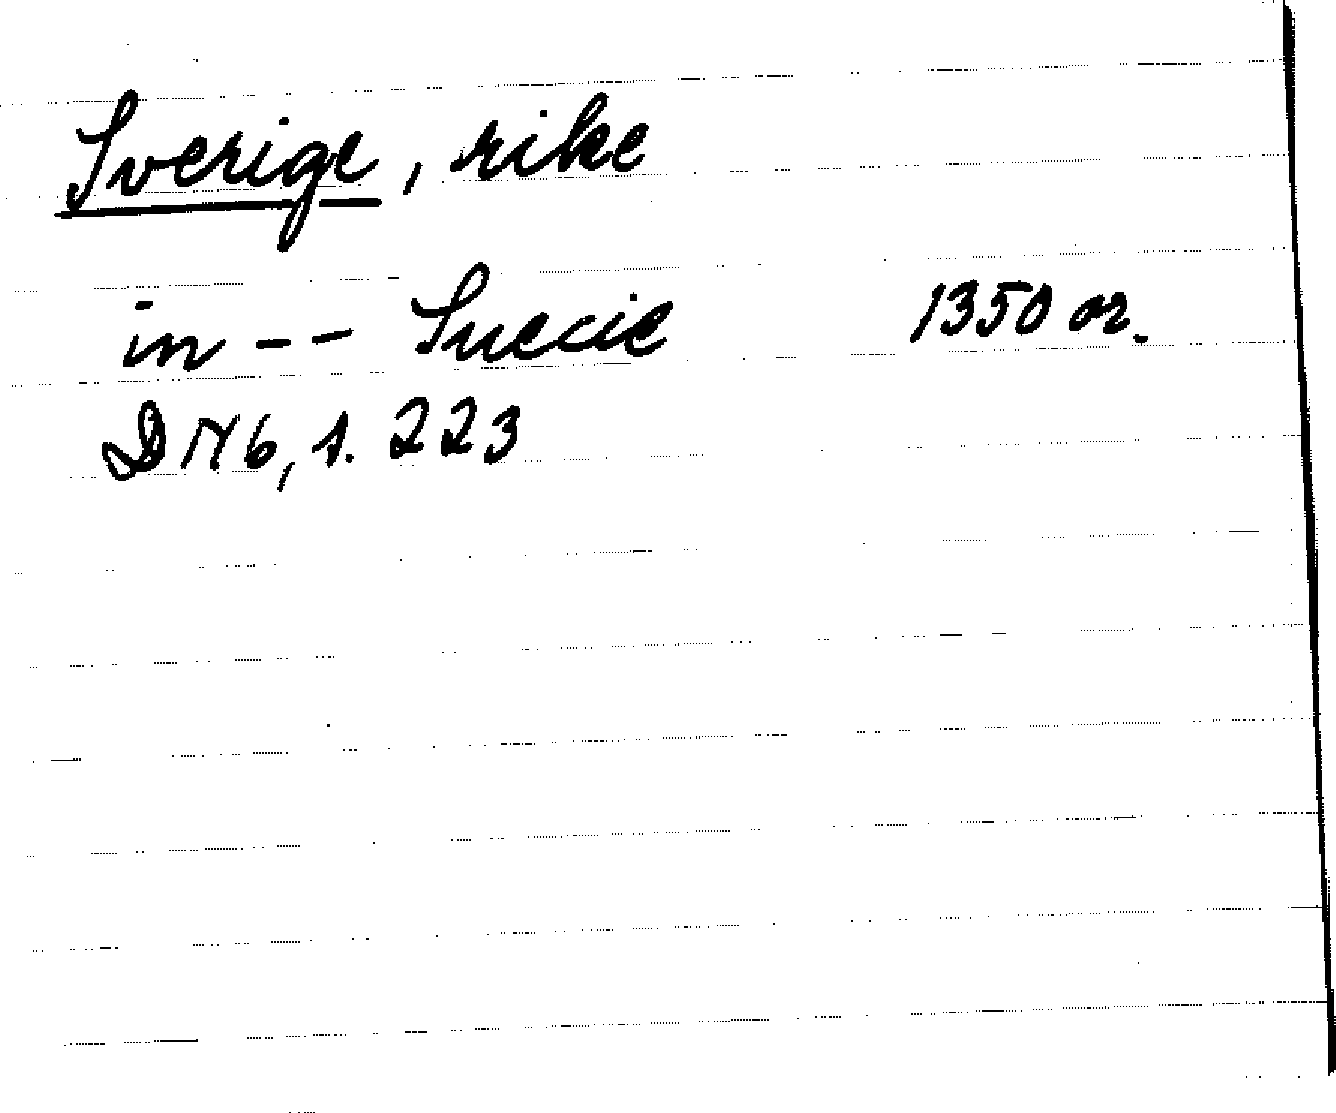 Sverige, rike
in -- Suecie 1350 or.
DN 6, s. 223